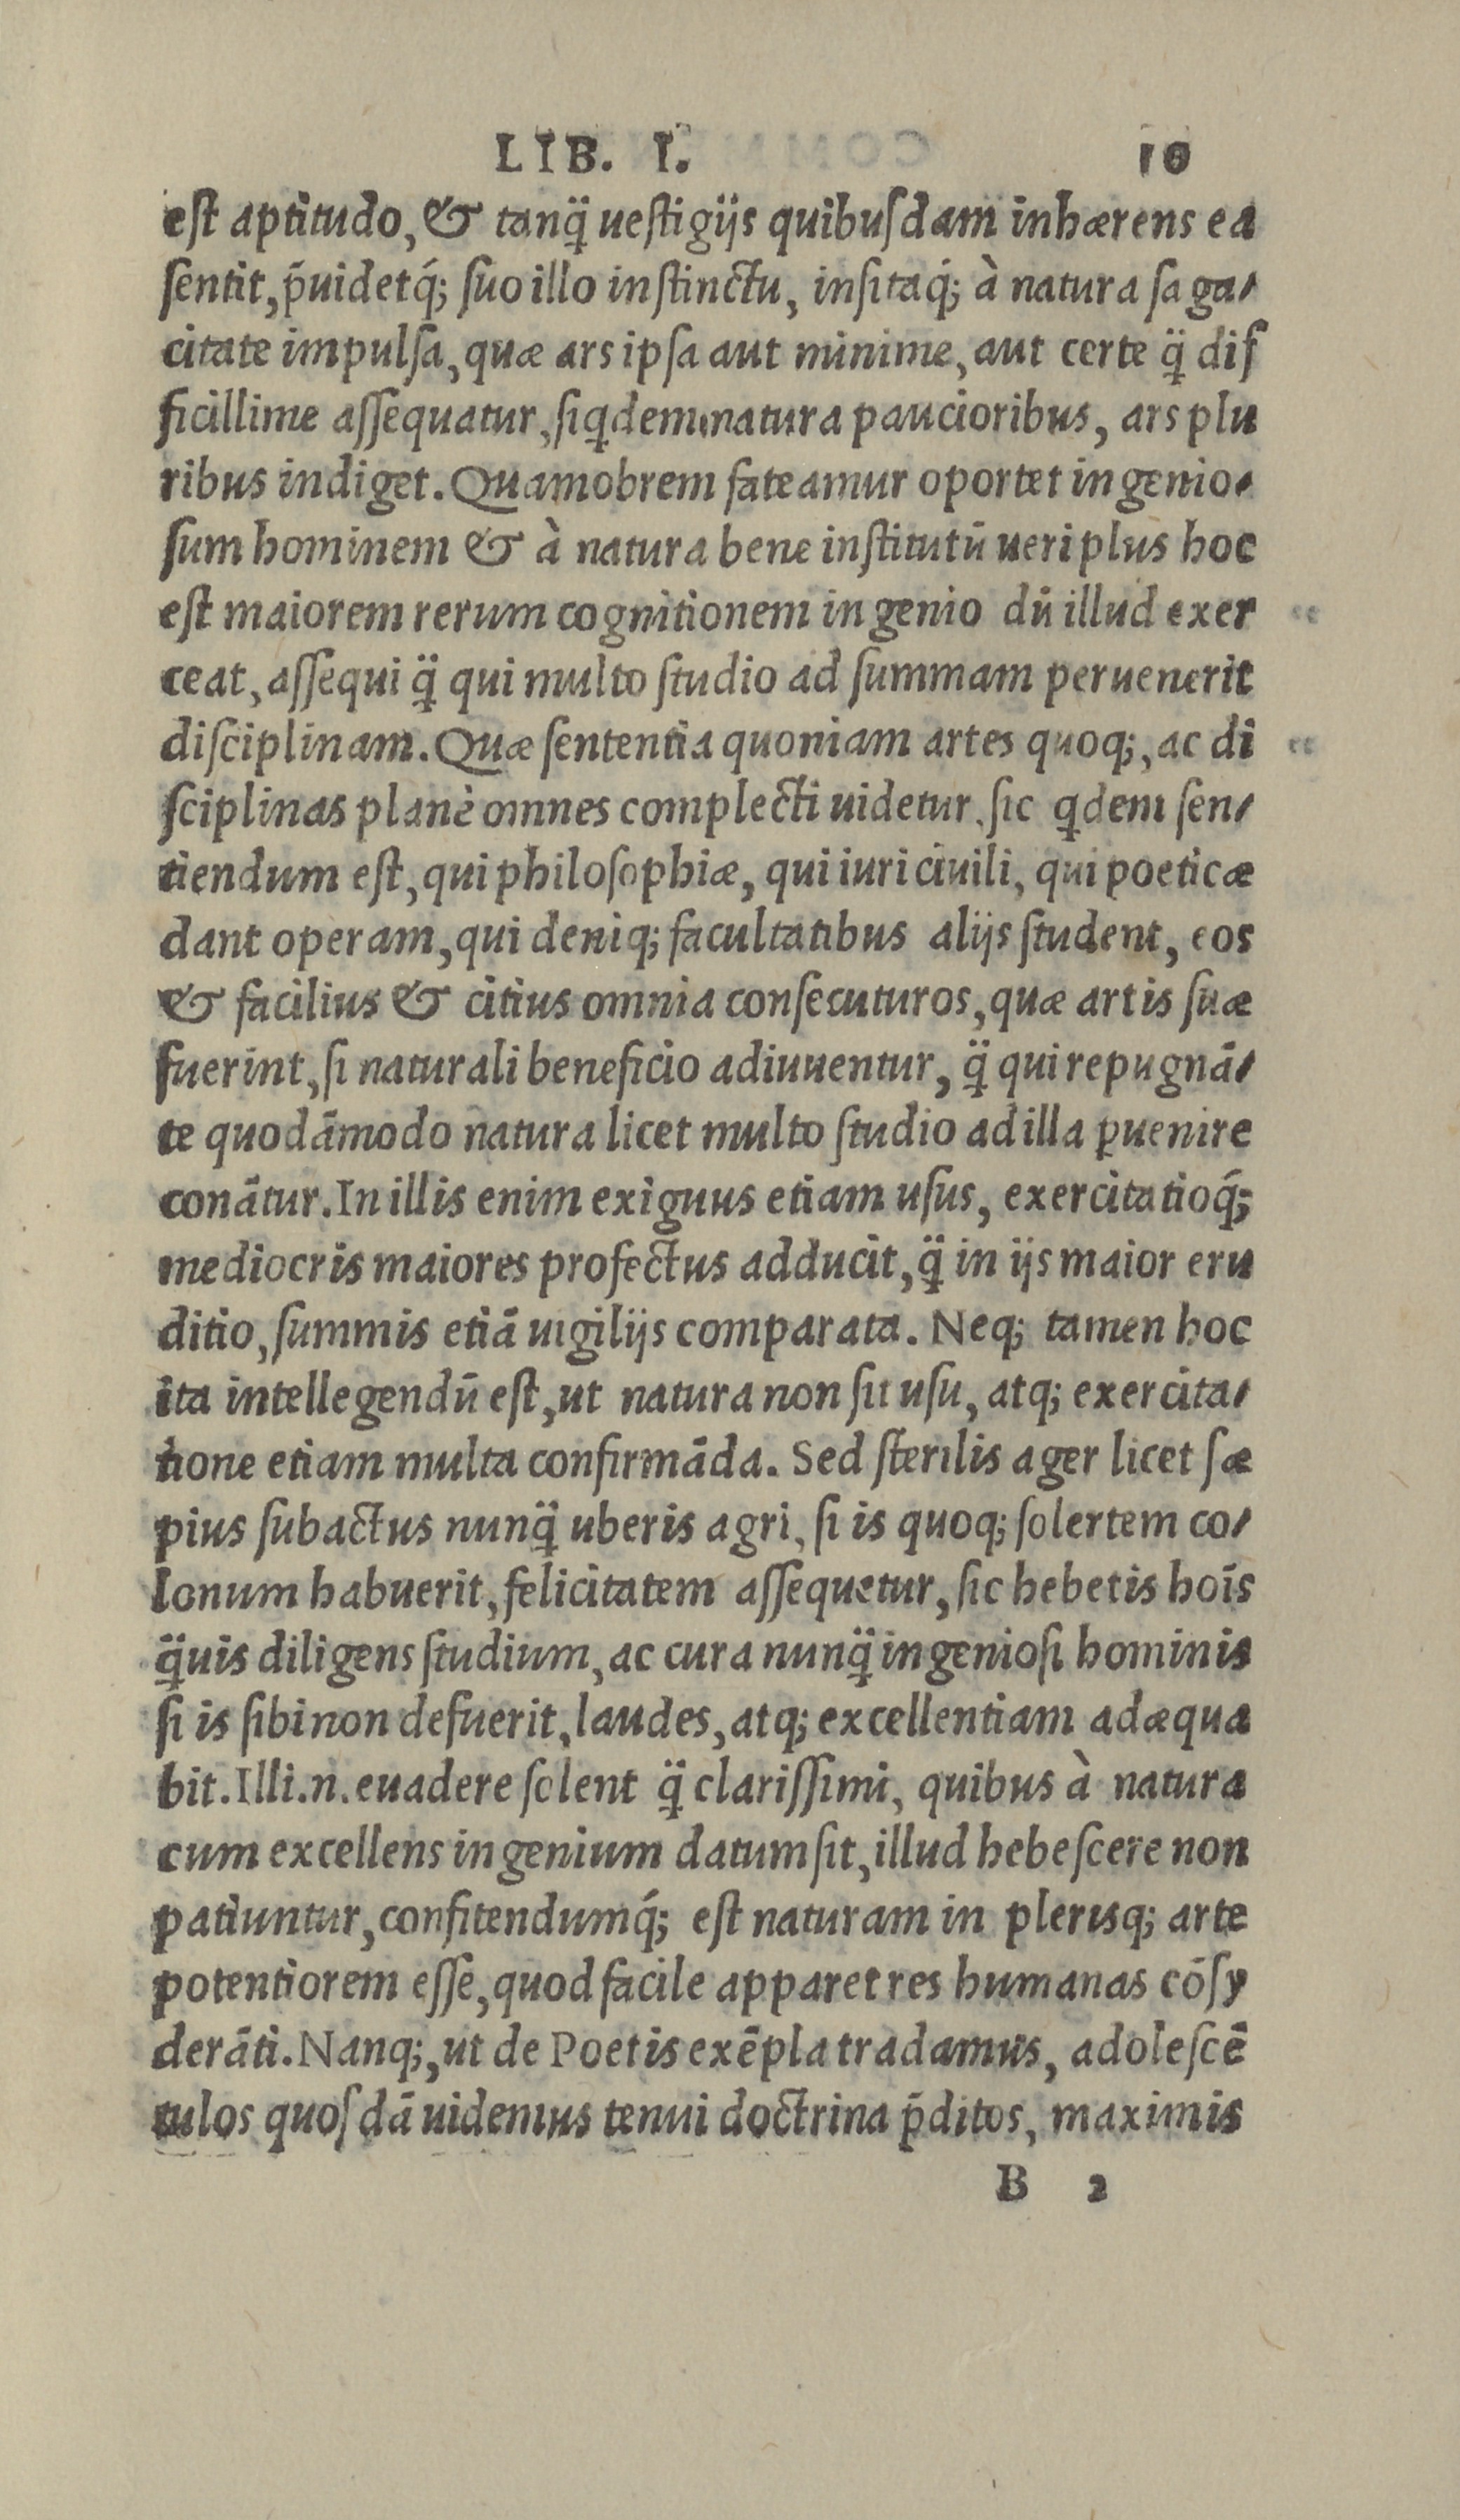 LIB. I. 10
est aptitudo, & tanq̃ uestigijs quibusdam inhærens ea
sentit, p̃uidetq́; suo illo instinctu, insitaq́; à natura saga/
citate impulsa, quæ ars ipsa aut minime, aut certe q̃ dif
ficillime assequatur, siqdem natura paucioribus, ars plu
ribus indiget. Quamobrem fateamur oportet ingenio/
sum hominem & à natura bene institutū ueri plus hoc
est maiorem rerum cognitionem ingenio dū illud exer
ceat, assequi q̃ qui multo studio ad summam peruenerit
disciplinam. Quæ sententia quoniam artes quoq;, ac di
sciplinas planè omnes complecti uidetur, sic qdem sen/
tiendum est, qui philosophiæ, qui iuri ciuili, qui poeticæ
dant operam, qui deniq; facultatibus alijs student, eos
& facilius & citius omnia consecuturos, quæ artis suæ
fuerint, si naturali beneficio adiuuentur, q̃ qui repugnā/
te quodāmodo natura licet multo studio ad illa ꝑuenire
conātur. In illis enim exiguus etiam usus, exercitatioq́;
mediocris maiores profectus adducit, q̃ in ijs maior eru
ditio, summis etiā uigilijs comparata. Neq; tamen hoc
ita intellegendū est, ut natura non sit usu, atq; exercita/
tione etiam multa confirmāda. Sed sterilis ager licet sæ
pius subactus nunq̃ uberis agri, si is quoq; solertem co/
lonum habuerit, felicitatem assequetur, sic hebetis hoīs
q̃uis diligens studium, ac cura nunq̃ ingeniosi hominis
si is sibi non defuerit, laudes, atq; excellentiam adæqua
bit. Illi .n. euadere solent q̃ clarissimi, quibus à natura
cum excellens ingenium datum sit, illud hebescere non
patiuntur, confitendumq́; est naturam in plerisq; arte
potentiorem esse, quod facile apparet res humanas cōsy
derāti. Nanq;, ut de Poetis exēpla tradamus, adolescē
tulos quosdā uidemus tenui doctrina p̃ditos, maximis
B 2